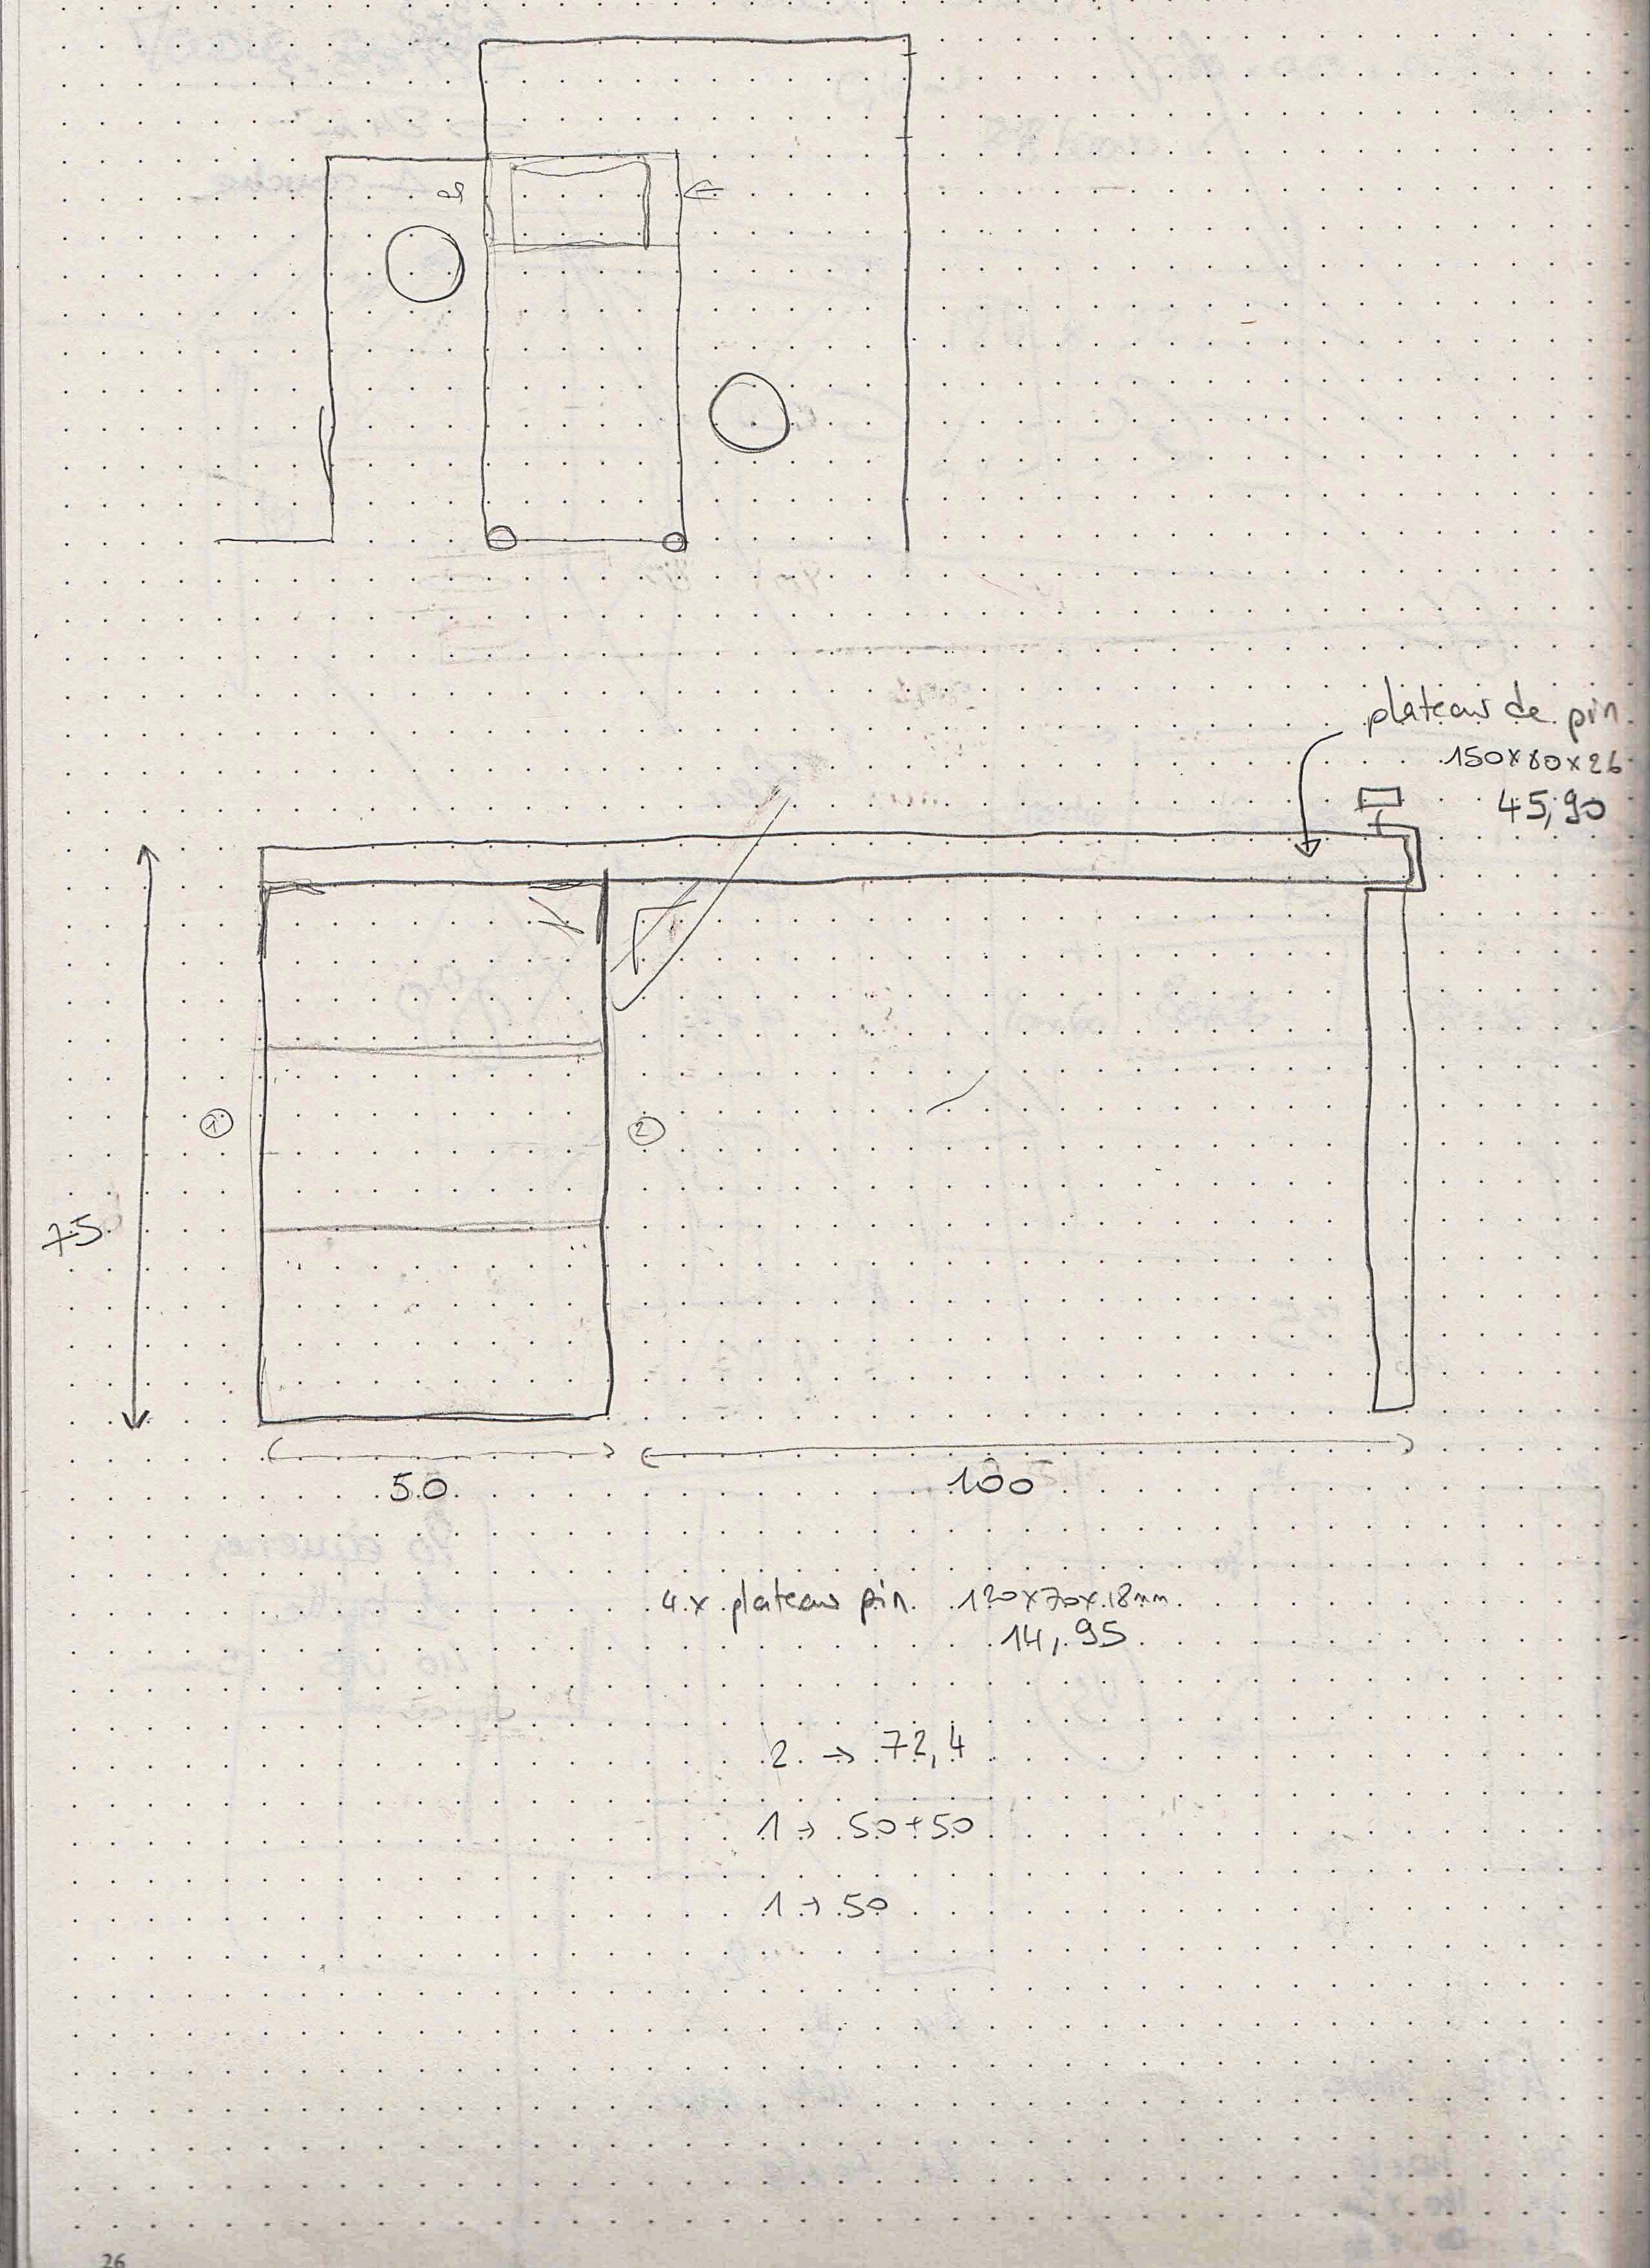 plateau de pin
150x80x26
45,90
1
2
75
50
100
4x plateau pin 120x70x18mm
14,95
2 → 72,4
1 → 50+50
1 → 50
26